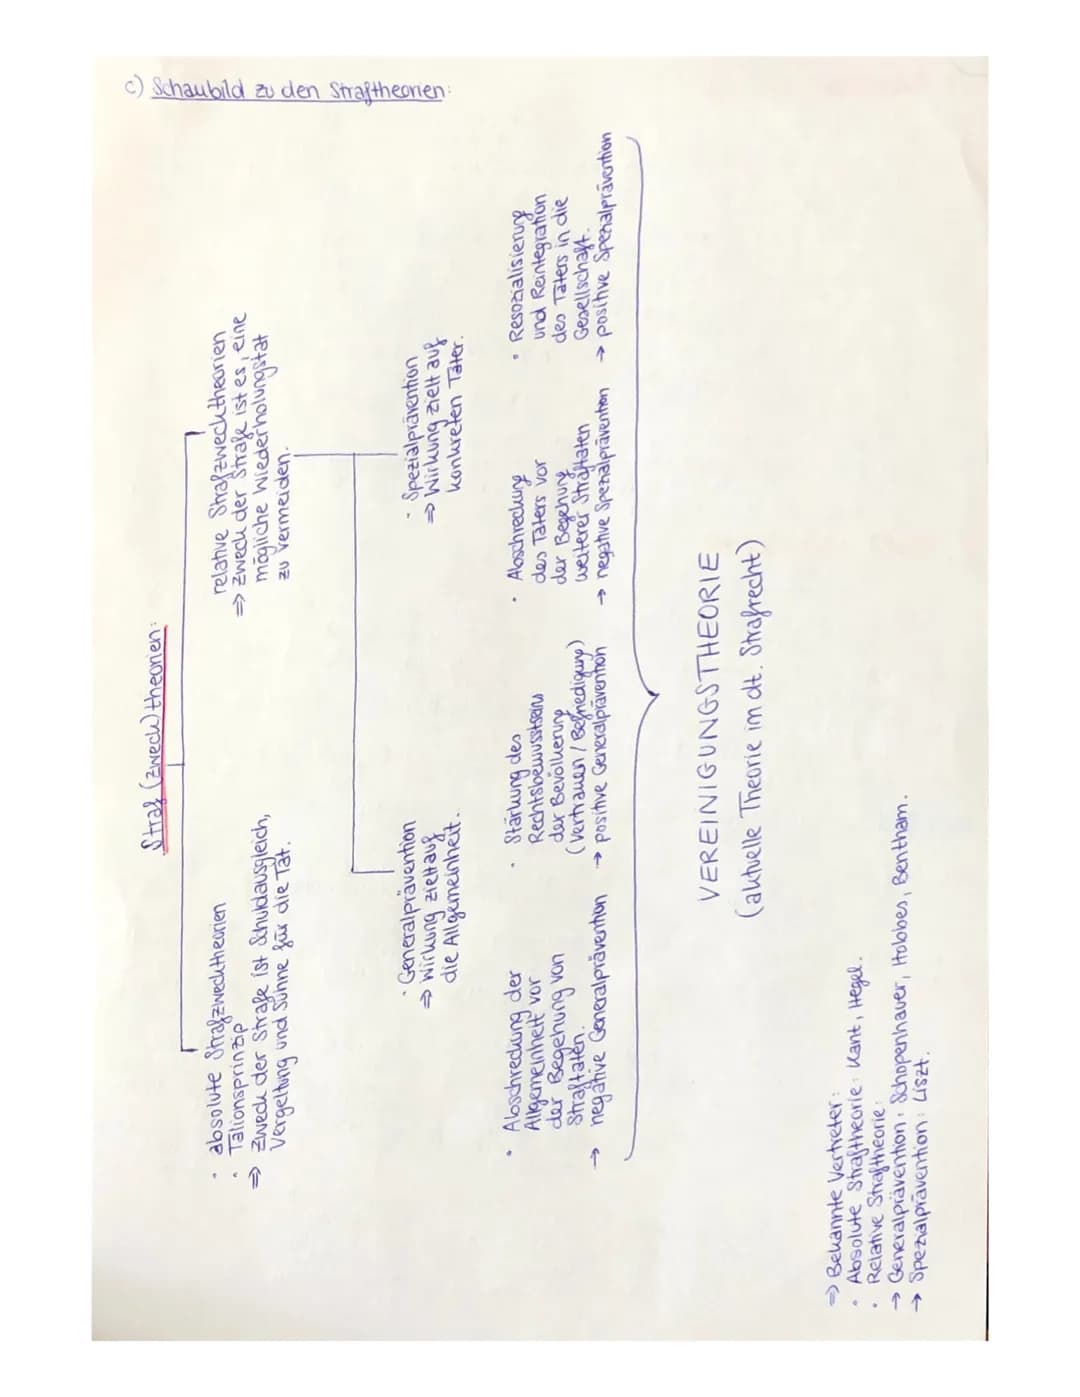 c) Schaubild zu den Straftheorien:
Straf (zweck) theorien:
· absolute Strafzwecktheorien
· Talionsprinzip
⇒ Zweck der Strafe ist Schuldausgleich,
Vergeltung und Sühne für die Tat.
relative Strafzwecktheorien
⇒ Zweck der Strafe ist es, eine
mögliche Wiederholungstat
zu vermeiden.
· Generalprävention
⇒ Wirkung zielt auf
die Allgemeinheit.
· Spezialprävention
⇒ Wirkung zielt auf
konkreten Täter.
• Abschreckung der
Allgemeinheit vor
der Begehung von
Straftaten.
→ negative Generalprävention
• Stärkung des
Rechtsbewusstseins
der Bevölkerung
(Vertrauen / Befriedigung)
→ positive Generalprävention
• Abschreckung
des Täters vor
der Begehung
weiterer Straftaten
→ negative Spezialprävention
• Resozialisierung
und Reintegration
des Täters in die
Gesellschaft.
→ positive Spezialprävention
VEREINIGUNGSTHEORIE
(aktuelle Theorie im dt. Strafrecht)
⇒ Bekannte Vertreter:
• Absolute Straftheorie: Kant, Hegel.
• Relative Straftheorie:
→ Generalprävention: Schopenhauer, Hobbes, Bentham.
→ Spezialprävention: Liszt.